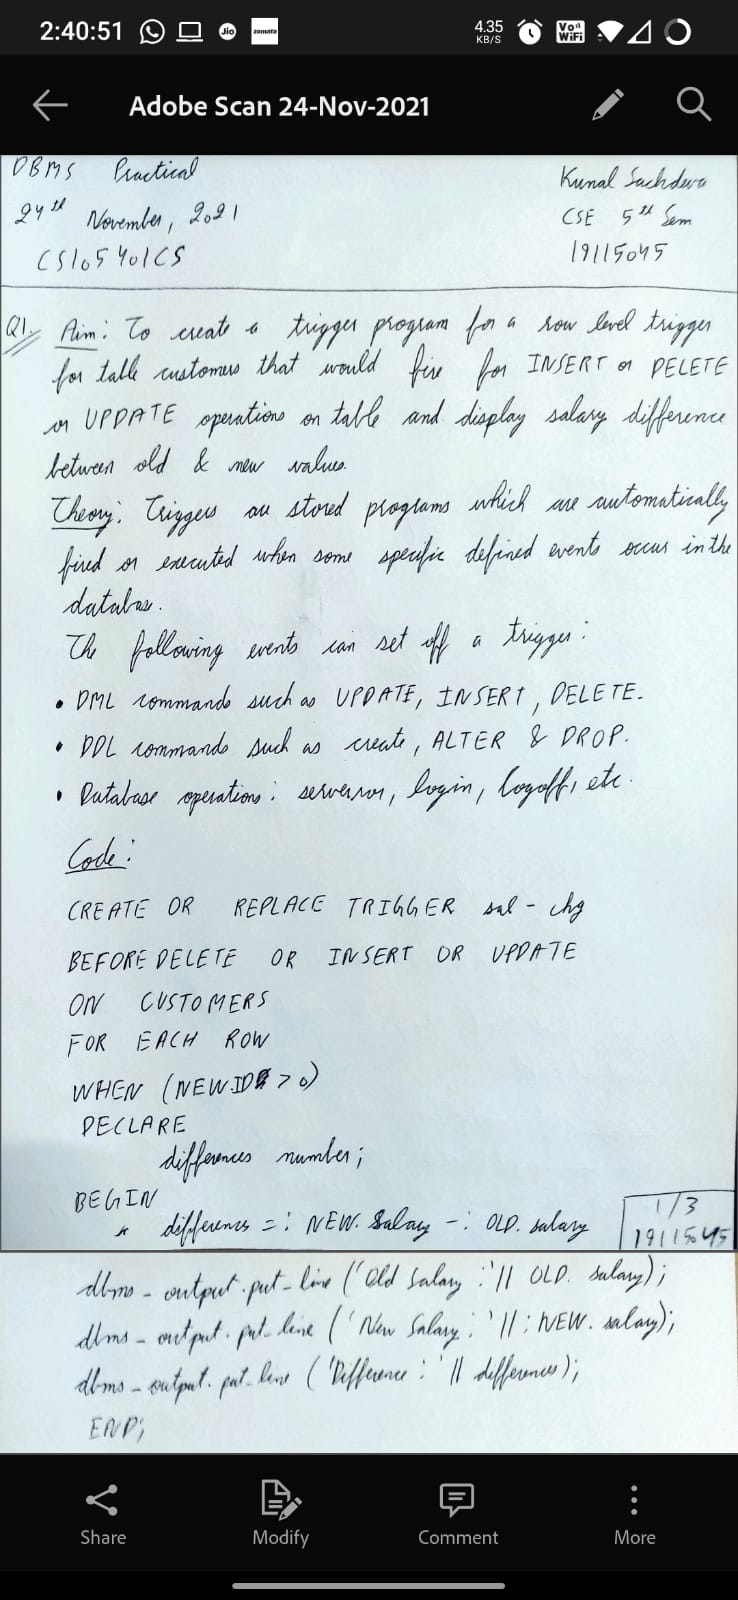 2:40:51
Jio
zomato
4.35
KB/S
Vo))
WiFi
Adobe Scan 24-Nov-2021
DBMS Practical
Kunal Sachdeva
24th November, 2021
CSE 5th Sem
CS105401CS
19115045
Q1. Aim: To create a trigger program for a row level trigger
for table customers that would fire for INSERT or DELETE
or UPDATE operations on table and display salary difference
between old & new values.
Theory: Triggers are stored programs which are automatically
fired or executed when some specific defined events occur in the
database.
The following events can set off a trigger:
• DML commands such as UPDATE, INSERT, DELETE.
• DDL commands such as create, ALTER & DROP.
• Database operations: login, logoff, etc.
Code:
CREATE OR REPLACE TRIGGER sal - chg
BEFORE DELETE OR INSERT OR UPDATE
ON CUSTOMERS
FOR EACH ROW
WHEN (NEW.ID > 0)
DECLARE
differences number;
BEGIN
differences =: NEW. Salary -: OLD. salary
1/3
19115045
dbms - output.put - line ('Old Salary :'|| OLD. salary);
dbms - output. put - line ('New Salary: '||: NEW. salary);
dbms - output. put - line ('Difference: ' || differences);
END;
Share
Modify
Comment
More